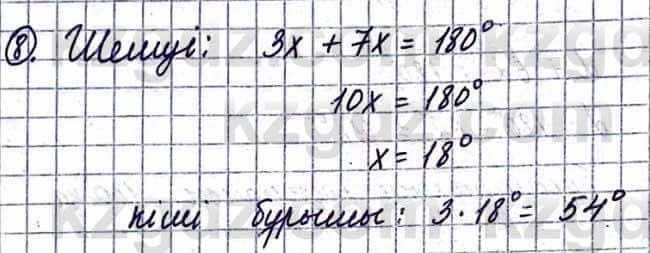 8. Шешуі: 3x + 7x = 180°
10x = 180°
x = 18°
кіші бұрышы: 3 · 18° = 54°
kzgdz.com